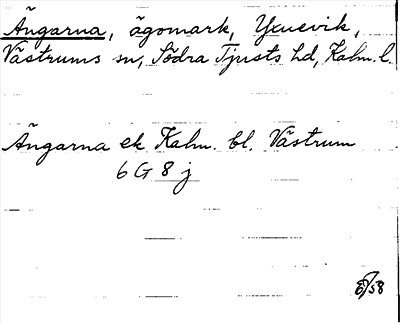 Ängarna, ägomark, Yxnevik,
Västrums sn, Södra Tjusts hd, Kalm. l.
Ängarna ek Kalm. bl. Västrum
6 G 8 j
6/58